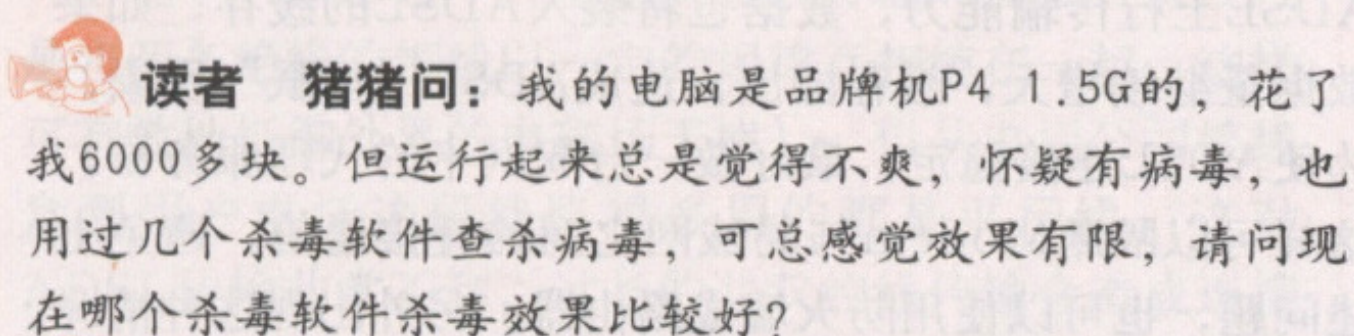 读者　猪猪问：我的电脑是品牌机P4 1.5G的，花了
我6000多块。但运行起来总是觉得不爽，怀疑有病毒，也
用过几个杀毒软件查杀病毒，可总感觉效果有限，请问现
在哪个杀毒软件杀毒效果比较好？